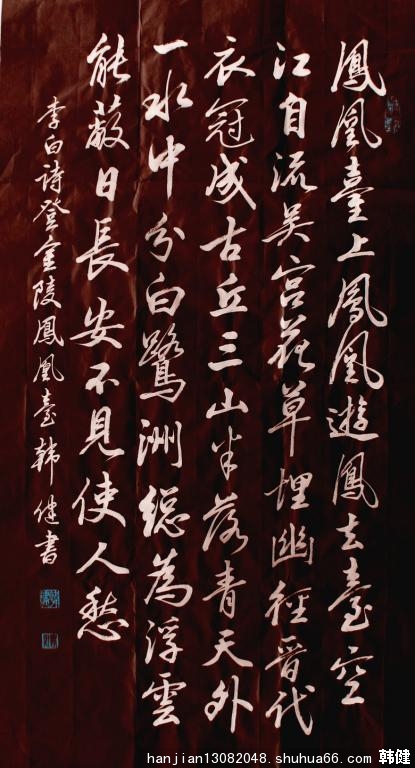 鳳凰臺上鳳凰遊鳳去臺空
江自流吴宫花草埋幽徑晉代
衣冠成古丘三山半落青天外
一水中分白鷺洲緫為浮雲
能蔽日長安不見使人愁
李白詩登金陵鳳凰臺韩健書
hanjian13082048.shuhua66.com 韩健